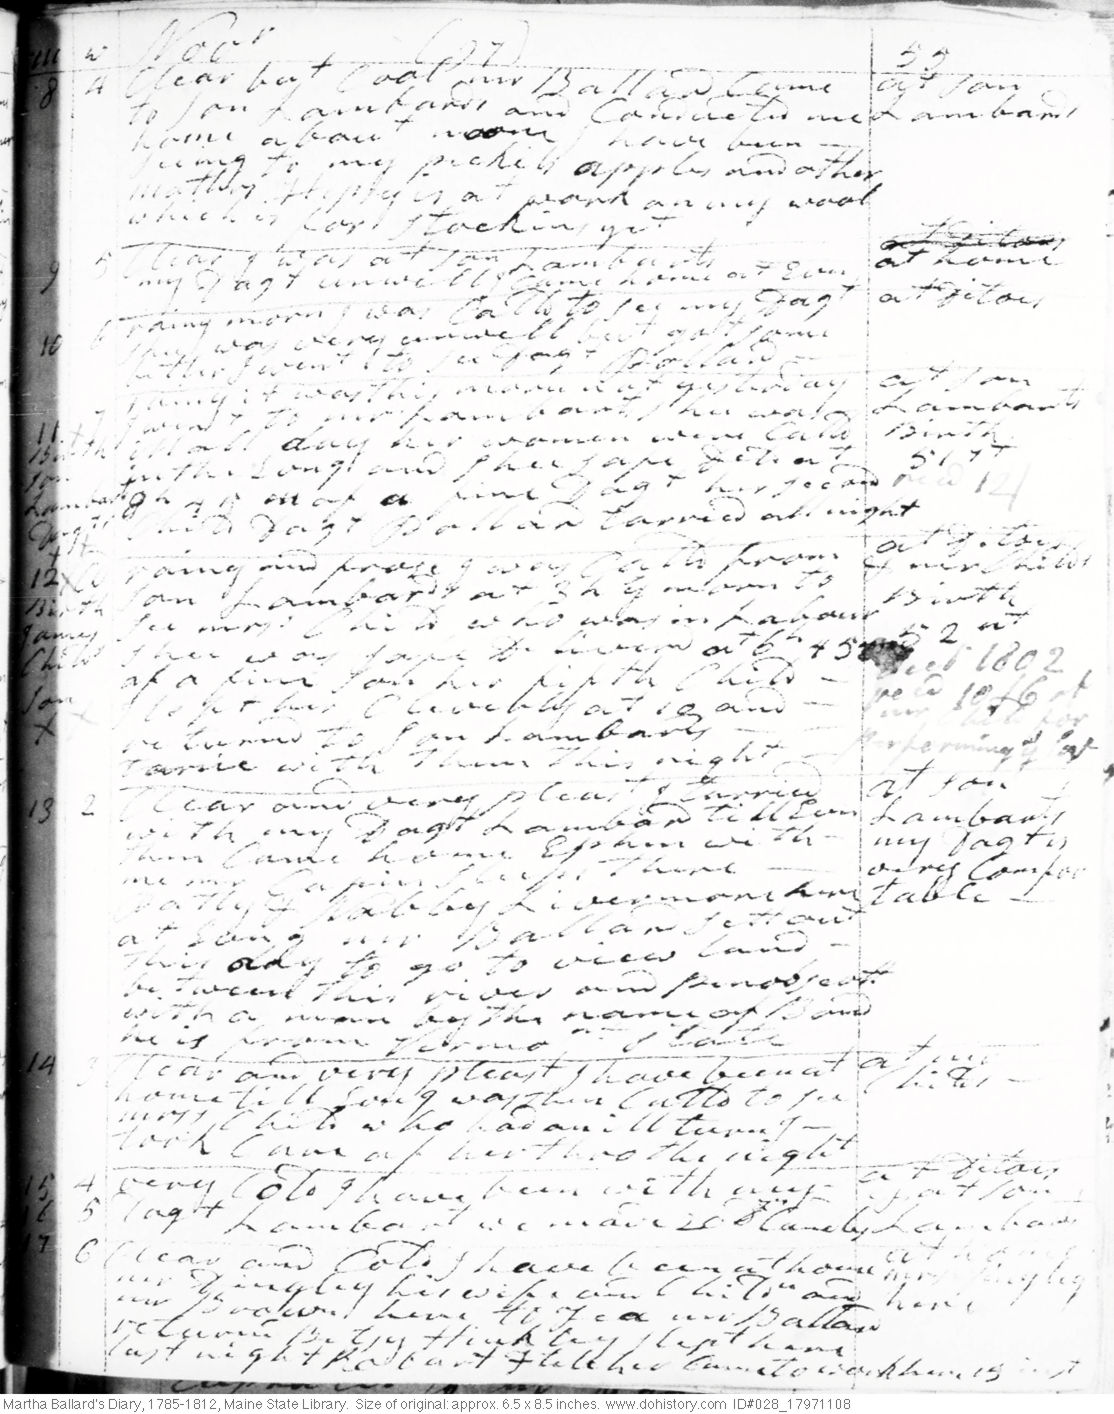 m w Novr 1797 55
8 4 Clear but Cool mr Ballard Came at Son
to Son Lambards and Conducted me Lambards
home about noone I have been
seeing to my pickels apples and other
matters Hepsy is at work on my wool
which is for Stockings yt
9 5 Clear I was at Son Lambarts at home
my Dagt unwell I Came home at Evn
10 6 rainy morn I was Calld to see my Dagt at Ditois
shee was very unwell but got some
I went to see Dagt Pollard
11 7 rainy it was this morn at yesterday at Son
I went to mr Lambarts shee was Lambarts
Birth ill all day her women were Calld Birth
Son in the Evng and shee safe Delivd at 51 yt
Lambards 8 h 45 m of a fine Dagt her second
Dagt Child Dagt Pollard tarried all night
XX
12 rainy and froze I was Calld from at Ditois
Birth Son Lambards at 3 h y morn to mr Childs
James see mrs Child who was in Labour Birth
Childs shee was safe Delivered at 6 h 45 m 52 at
Son of a fine Son her fifth Child 1802
XX I left her Cleverly at 10 and
returnd to Son Lambards mr Child for
tarrie with them this night performing
13 2 Clear and very pleast I tarried at Son
with my Dagt Lambard till Evn Lambards
then Came home Ephm with my Dagt is
me mr Gapin sleeps there very Comfor
Dolly & Sally Livermore here table
at Evng mr Ballard sett out
this day to go to view land
between this river and penobscott
with a man by the name of Bond
he is from Vermont State
14 3 Clear and very pleast I have been at at mr
home till Evng was then Calld to see Childs
mrs Child who had an ill turn I
took Care of her thro the night
15 4 very Cold I have been with my at Ditois
16 5 Dagt Lambart we made 20 Dn Candles at Son Lambards
17 6 Clear and Cold I have been at home at home
mr Dingley his wife and Childn and mrs Dingley
mr Brown here to Tea mr Ballard here
returnd Betsy Hinkley slept here
last night Robart Fletcher Came to work here 15 inst
Martha Ballard's Diary, 1785-1812, Maine State Library. Size of original: approx. 6.5 x 8.5 inches. www.dohistory.com ID#028_17971108